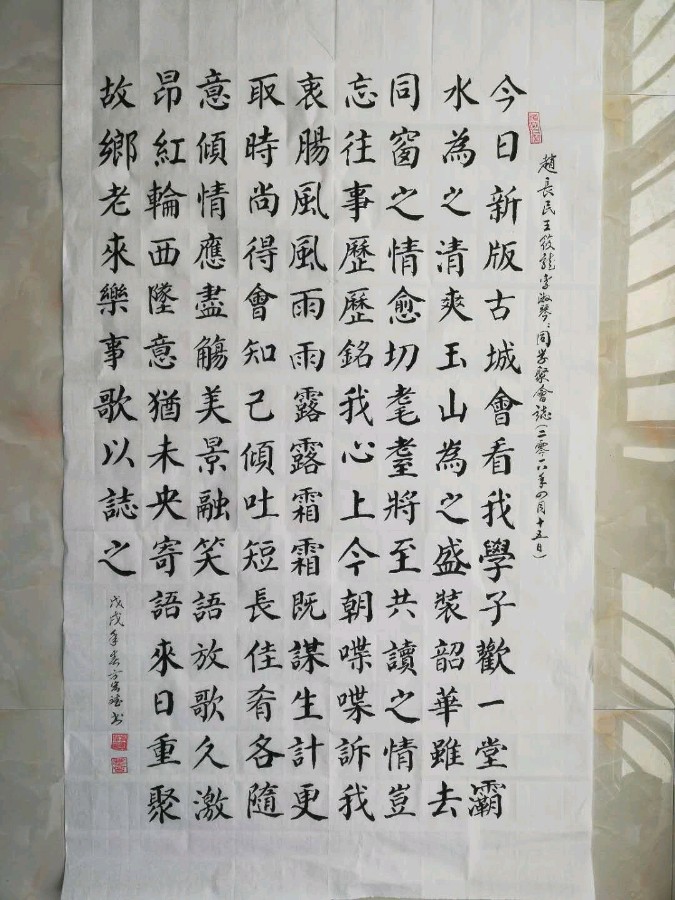 趙長民王筱龍李淑琴、同学聚會誌(二零一八年四月十五日)
今日新版古城會看我學子歡一堂灞
水為之清爽玉山為之盛裝韶華雖去
同窗之情愈切耄耋將至共讀之情豈
忘往事歷歷銘我心上今朝喋喋訴我
衷腸風風雨雨露露霜霜既謀生計更
取時尚得會知己傾吐短長佳肴各隨
意傾情應盡觴美景融笑語放歌久激
昂紅輪西墜意猶未央寄語來日重聚
故鄉老來樂事歌以誌之
戊戌年春方書